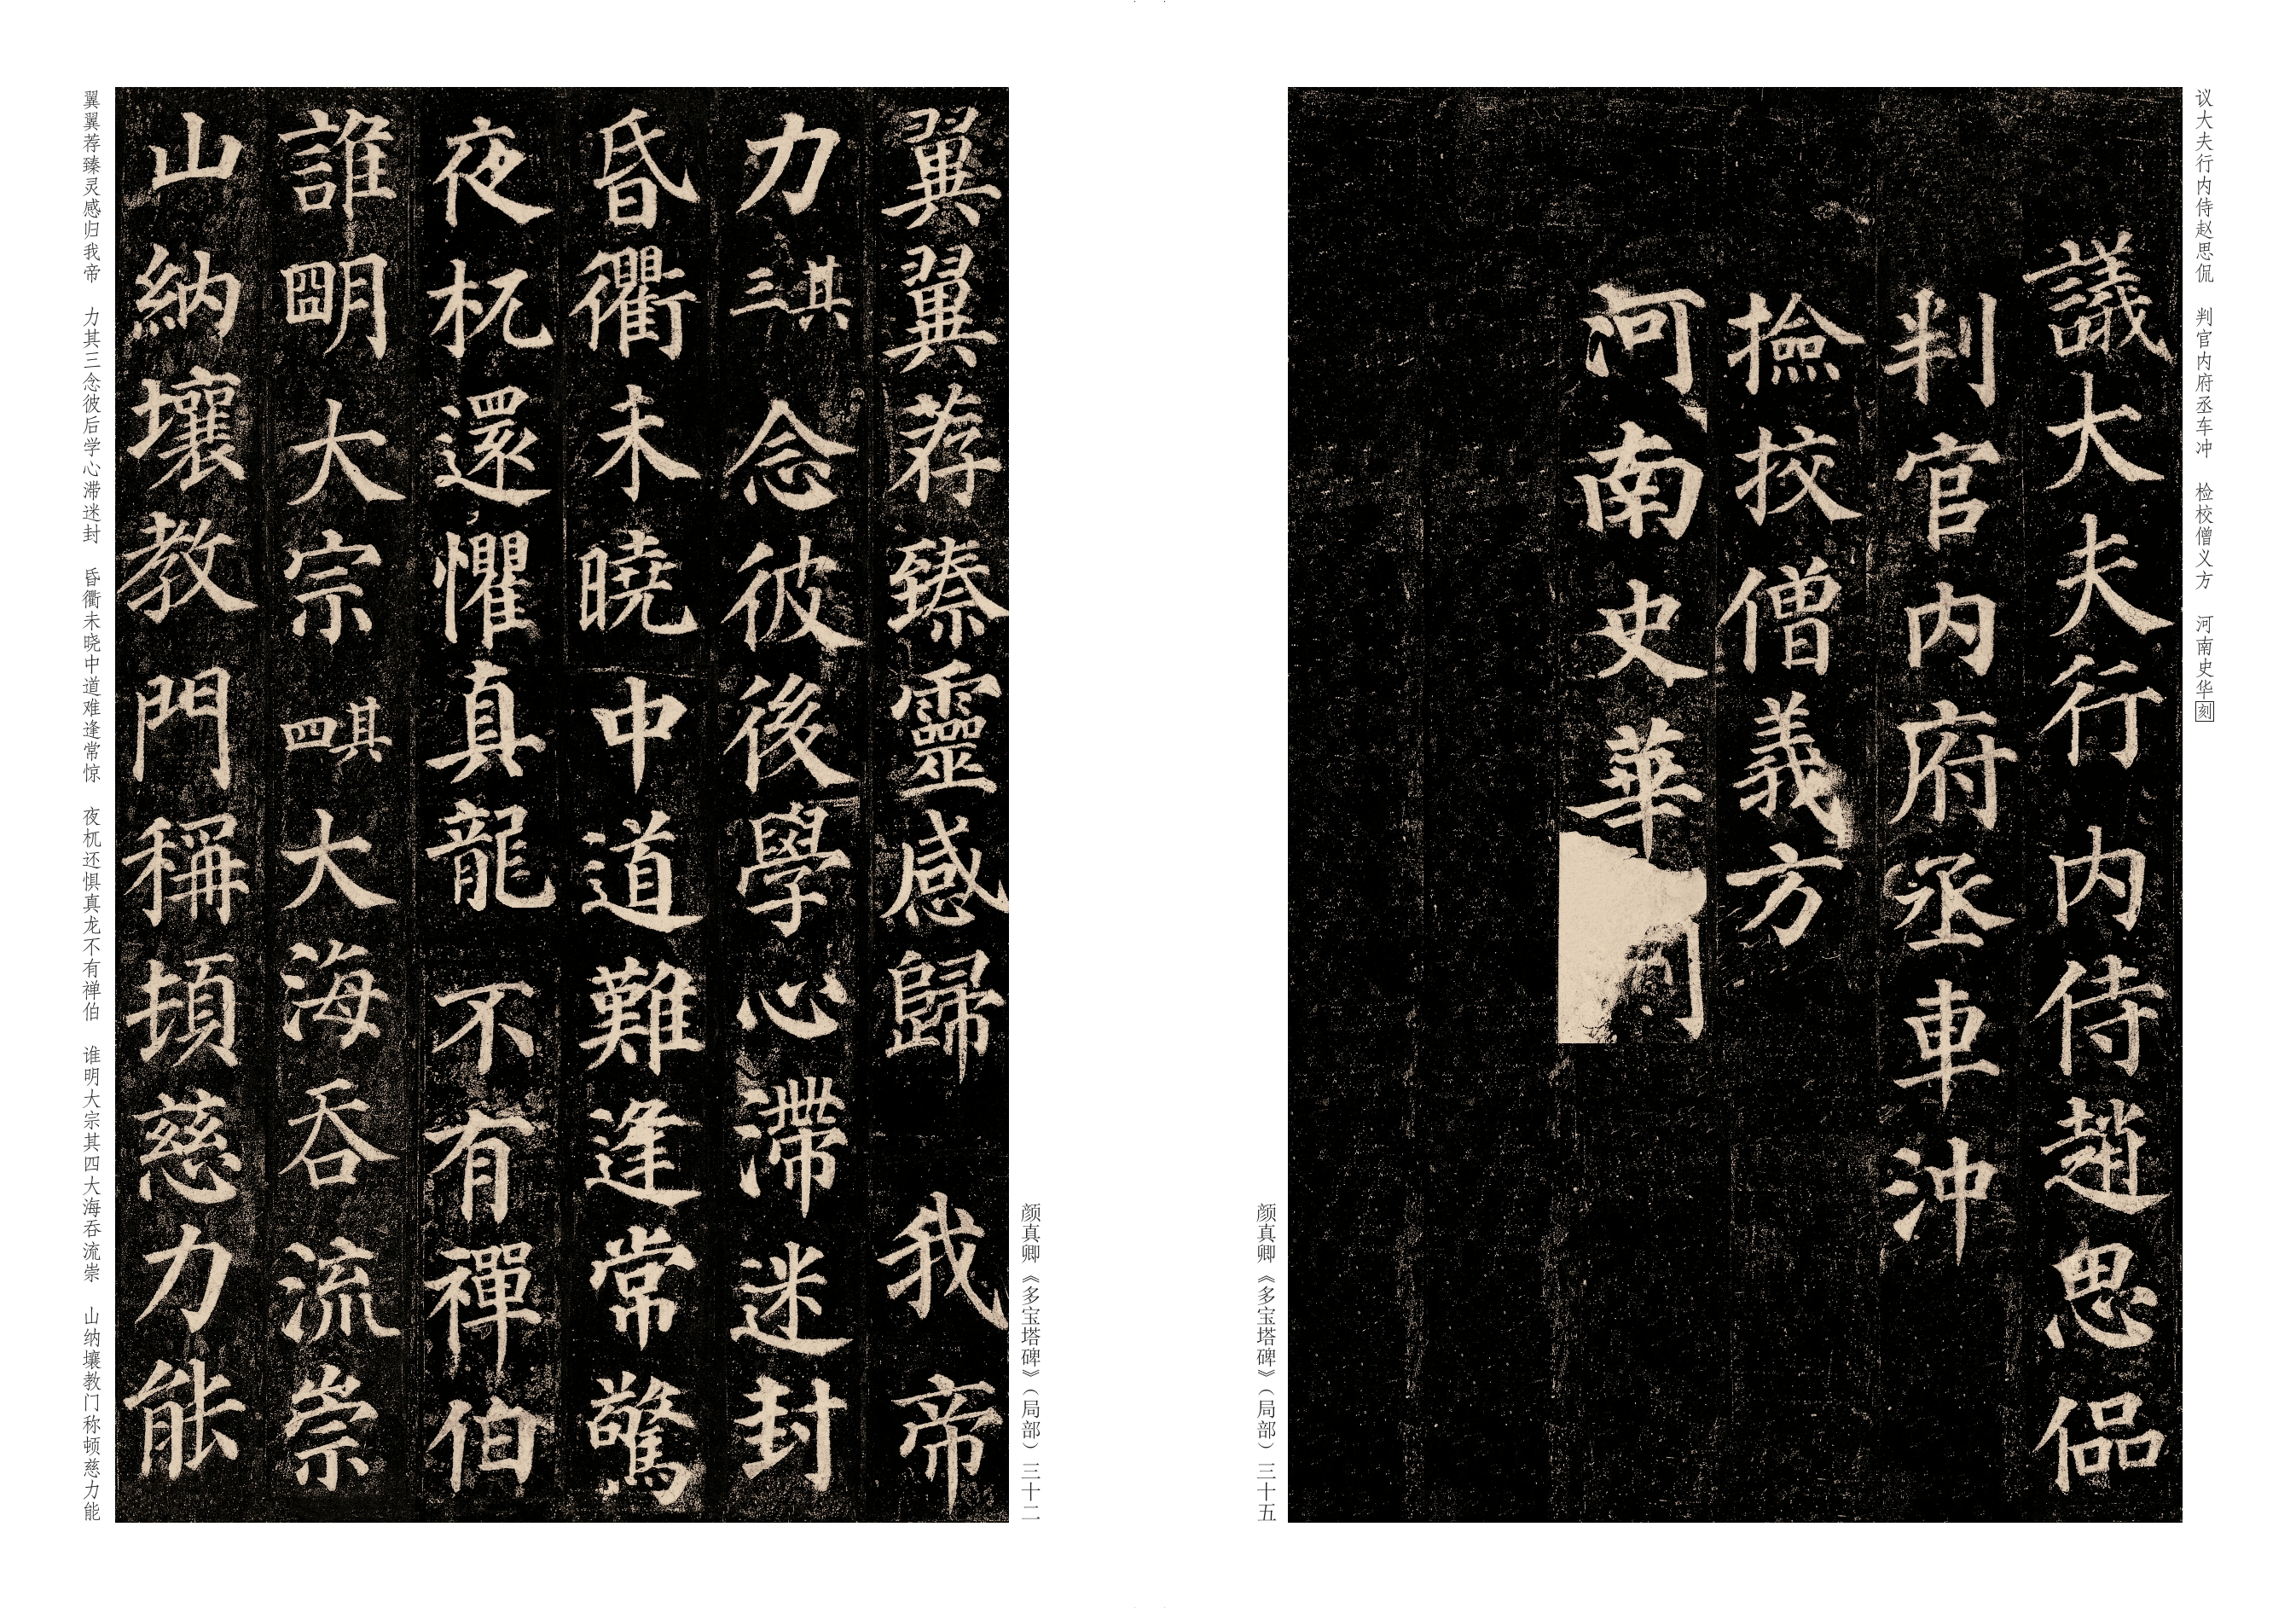 议大夫行内侍赵思侃 判官内府丞车冲 检校僧义方 河南史华刻
議大夫行内侍趙思偘
判官内府丞車沖
撿挍僧義方
河南史華
颜真卿《多宝塔碑》(局部)三十五
颜真卿《多宝塔碑》(局部)三十二
翼翼荐臻靈感歸 我帝
力其三念彼後學心滯迷封
昏衢未曉中道難逢常驚
夜杌還懼真龍不有禪伯
誰明大宗其四大海吞流崇
山納壤教門稱頓慈力能
翼翼荐臻灵感归我帝 力其三念彼后学心滞迷封 昏衢未晓中道难逢常惊 夜杌还惧真龙不有禅伯 谁明大宗其四大海吞流崇 山纳壤教门称顿慈力能